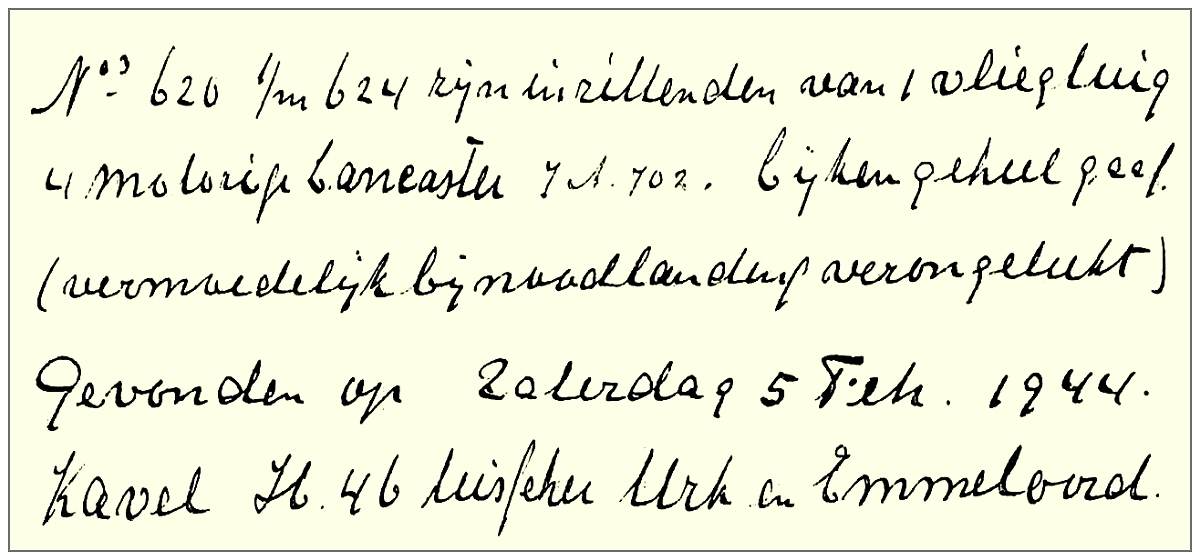 Nos 620 t/m 624 zijn inzittenden van 1 vliegtuig
4 motorig Lancaster J.A. 702. Lijken geheel gaaf.
(vermoedelijk bij noodlanding verongelukt)
Gevonden op Zaterdag 5 Feb. 1944.
Kavel H. 46 tusschen Urk en Emmeloord.